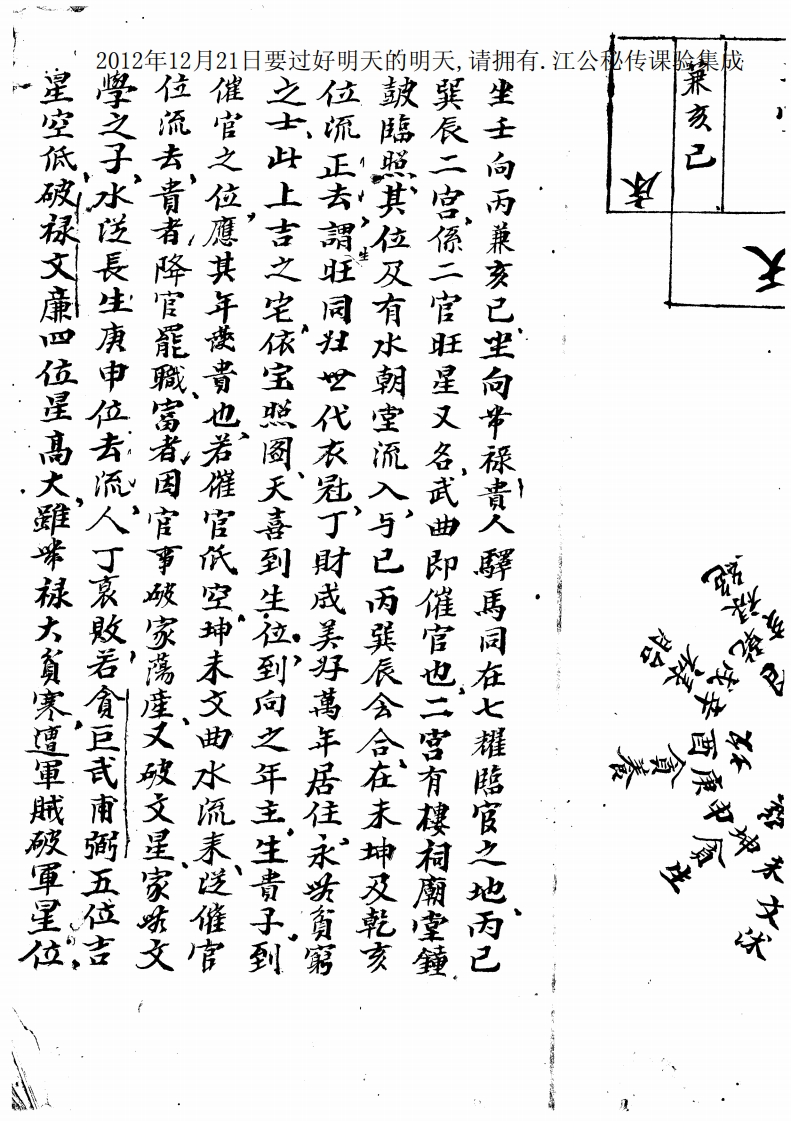 2012年12月21日要过好明天的明天,请拥有.江公秘传课验集成
兼亥己
床
天
坐壬向丙兼亥己、坐向带禄貴人驛馬同在七耀臨官之地、丙己
巽辰二宮、係二官旺星又名、武曲即催官也、二宮有樓祠廟堂鐘
皷臨照、其位及有水朝堂流入、与已丙巽辰会合、在未坤及乾亥
位流正去、謂生旺同归世代衣冠、丁財成美好萬年居住、永無貧窮
之士、此上吉之宅、依宝照图、天喜到生位、到向之年主、生貴子、到
催官之位、應其年發貴也、若催官低空、坤未文曲水流来、送催官
位流去、貴者降官罷職、富者、因官事破家蕩産、又破文星、家無文
學之子、水送長生庚申位去流、人丁衰敗、若貪巨武甫弼五位吉
星空低、破禄文廉四位星高大、雖带禄大貧寒、遭軍賊破軍星位、
庚申坤未文
貪
酉辛戌乾亥